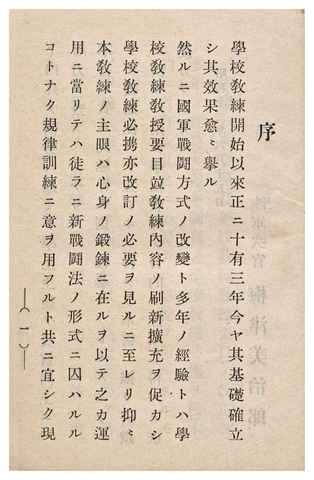 序
學校教練開始以來正ニ十有三年今ヤ其基礎確立
シ其效果愈〻擧ル
然ルニ國軍戰鬪方式ノ改變ト多年ノ經驗トハ學
校教練教授要目竝教練內容ノ刷新擴充ヲ促カシ
學校教練必携亦改訂ノ必要ヲ見ルニ至レリ抑〻
本教練ノ主眼ハ心身ノ鍛鍊ニ在ルヲ以テ之カ運
用ニ當リテハ徒ラニ新戰鬪法ノ形式ニ囚ハルル
コトナク規律訓練ニ意ヲ用フルト共ニ宜シク現
(一)